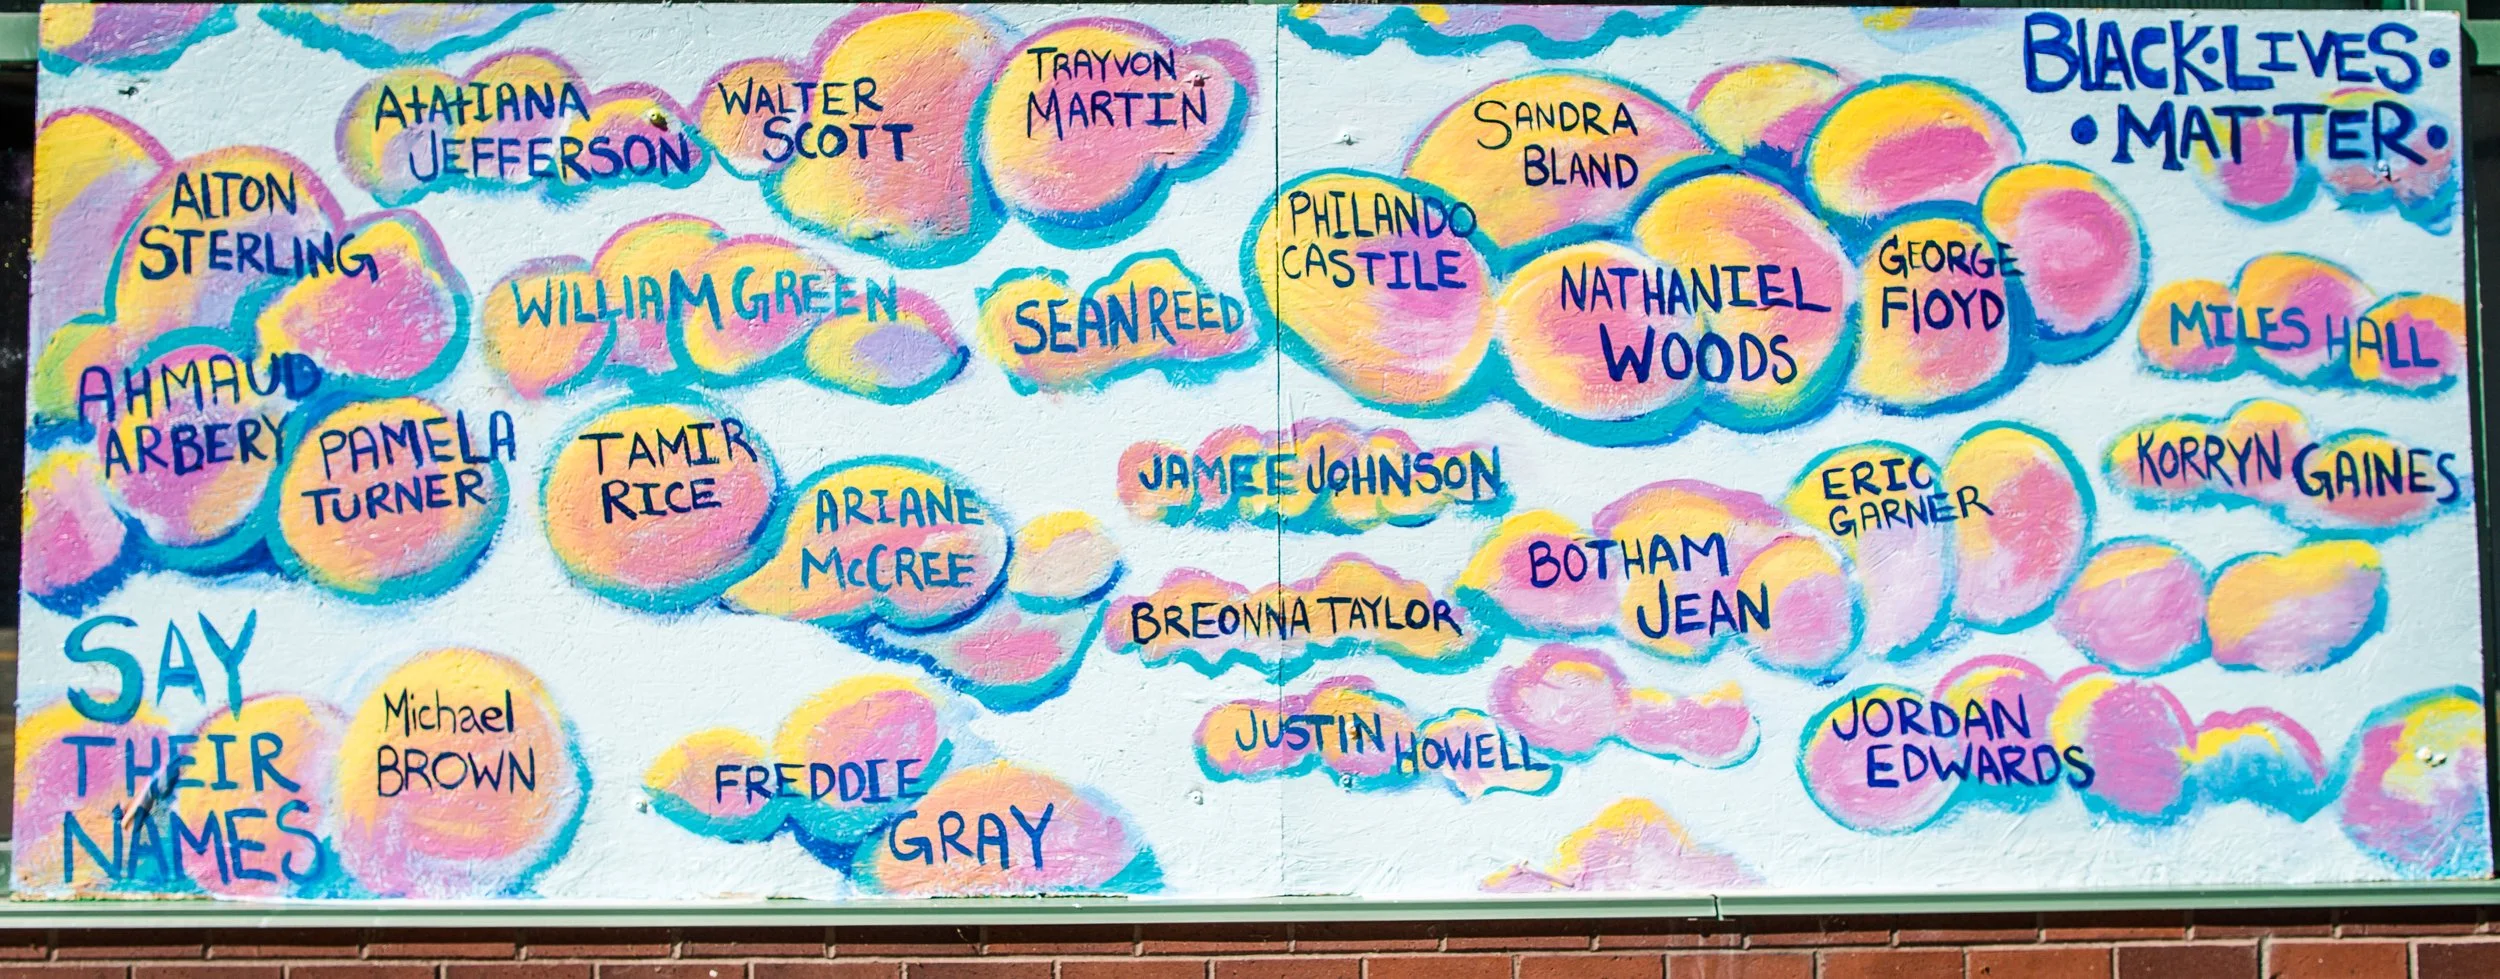 BLACK•LIVES•
•MATTER•
ATATIANA
JEFFERSON
WALTER
SCOTT
TRAYVON
MARTIN
SANDRA
BLAND
ALTON
STERLING
WILLIAM GREEN
SEAN REED
PHILANDO
CASTILE
NATHANIEL
WOODS
GEORGE
FLOYD
MILES HALL
AHMAUD
ARBERY
PAMELA
TURNER
TAMIR
RICE
ARIANE
McCREE
JAMEE JOHNSON
ERIC
GARNER
KORRYN GAINES
BREONNA TAYLOR
BOTHAM
JEAN
SAY
THEIR
NAMES
Michael
BROWN
FREDDIE
GRAY
JUSTIN HOWELL
JORDAN
EDWARDS